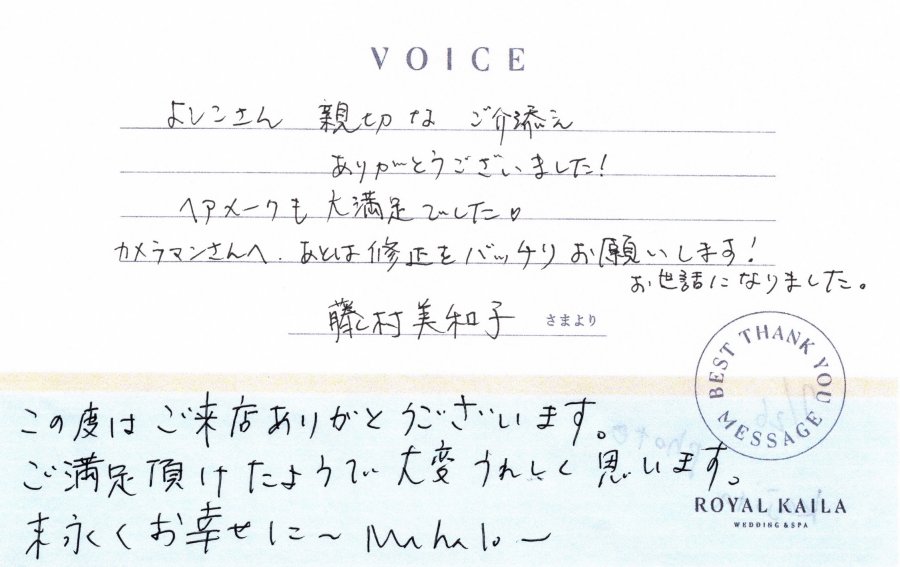 VOICE
よしこさん 親切な ご介添え
ありがとうございました!
ヘアメークも 大満足でした♡
カメラマンさんへ. あとは修正をバッチリお願いします!
お世話になりました。
藤村美和子 さまより
BEST THANK YOU MESSAGE
この度はご来店ありがとうございます。
ご満足頂けたようで大変うれしく思います。
末永くお幸せに〜 Mahalo 〜
ROYAL KAILA
WEDDING & SPA